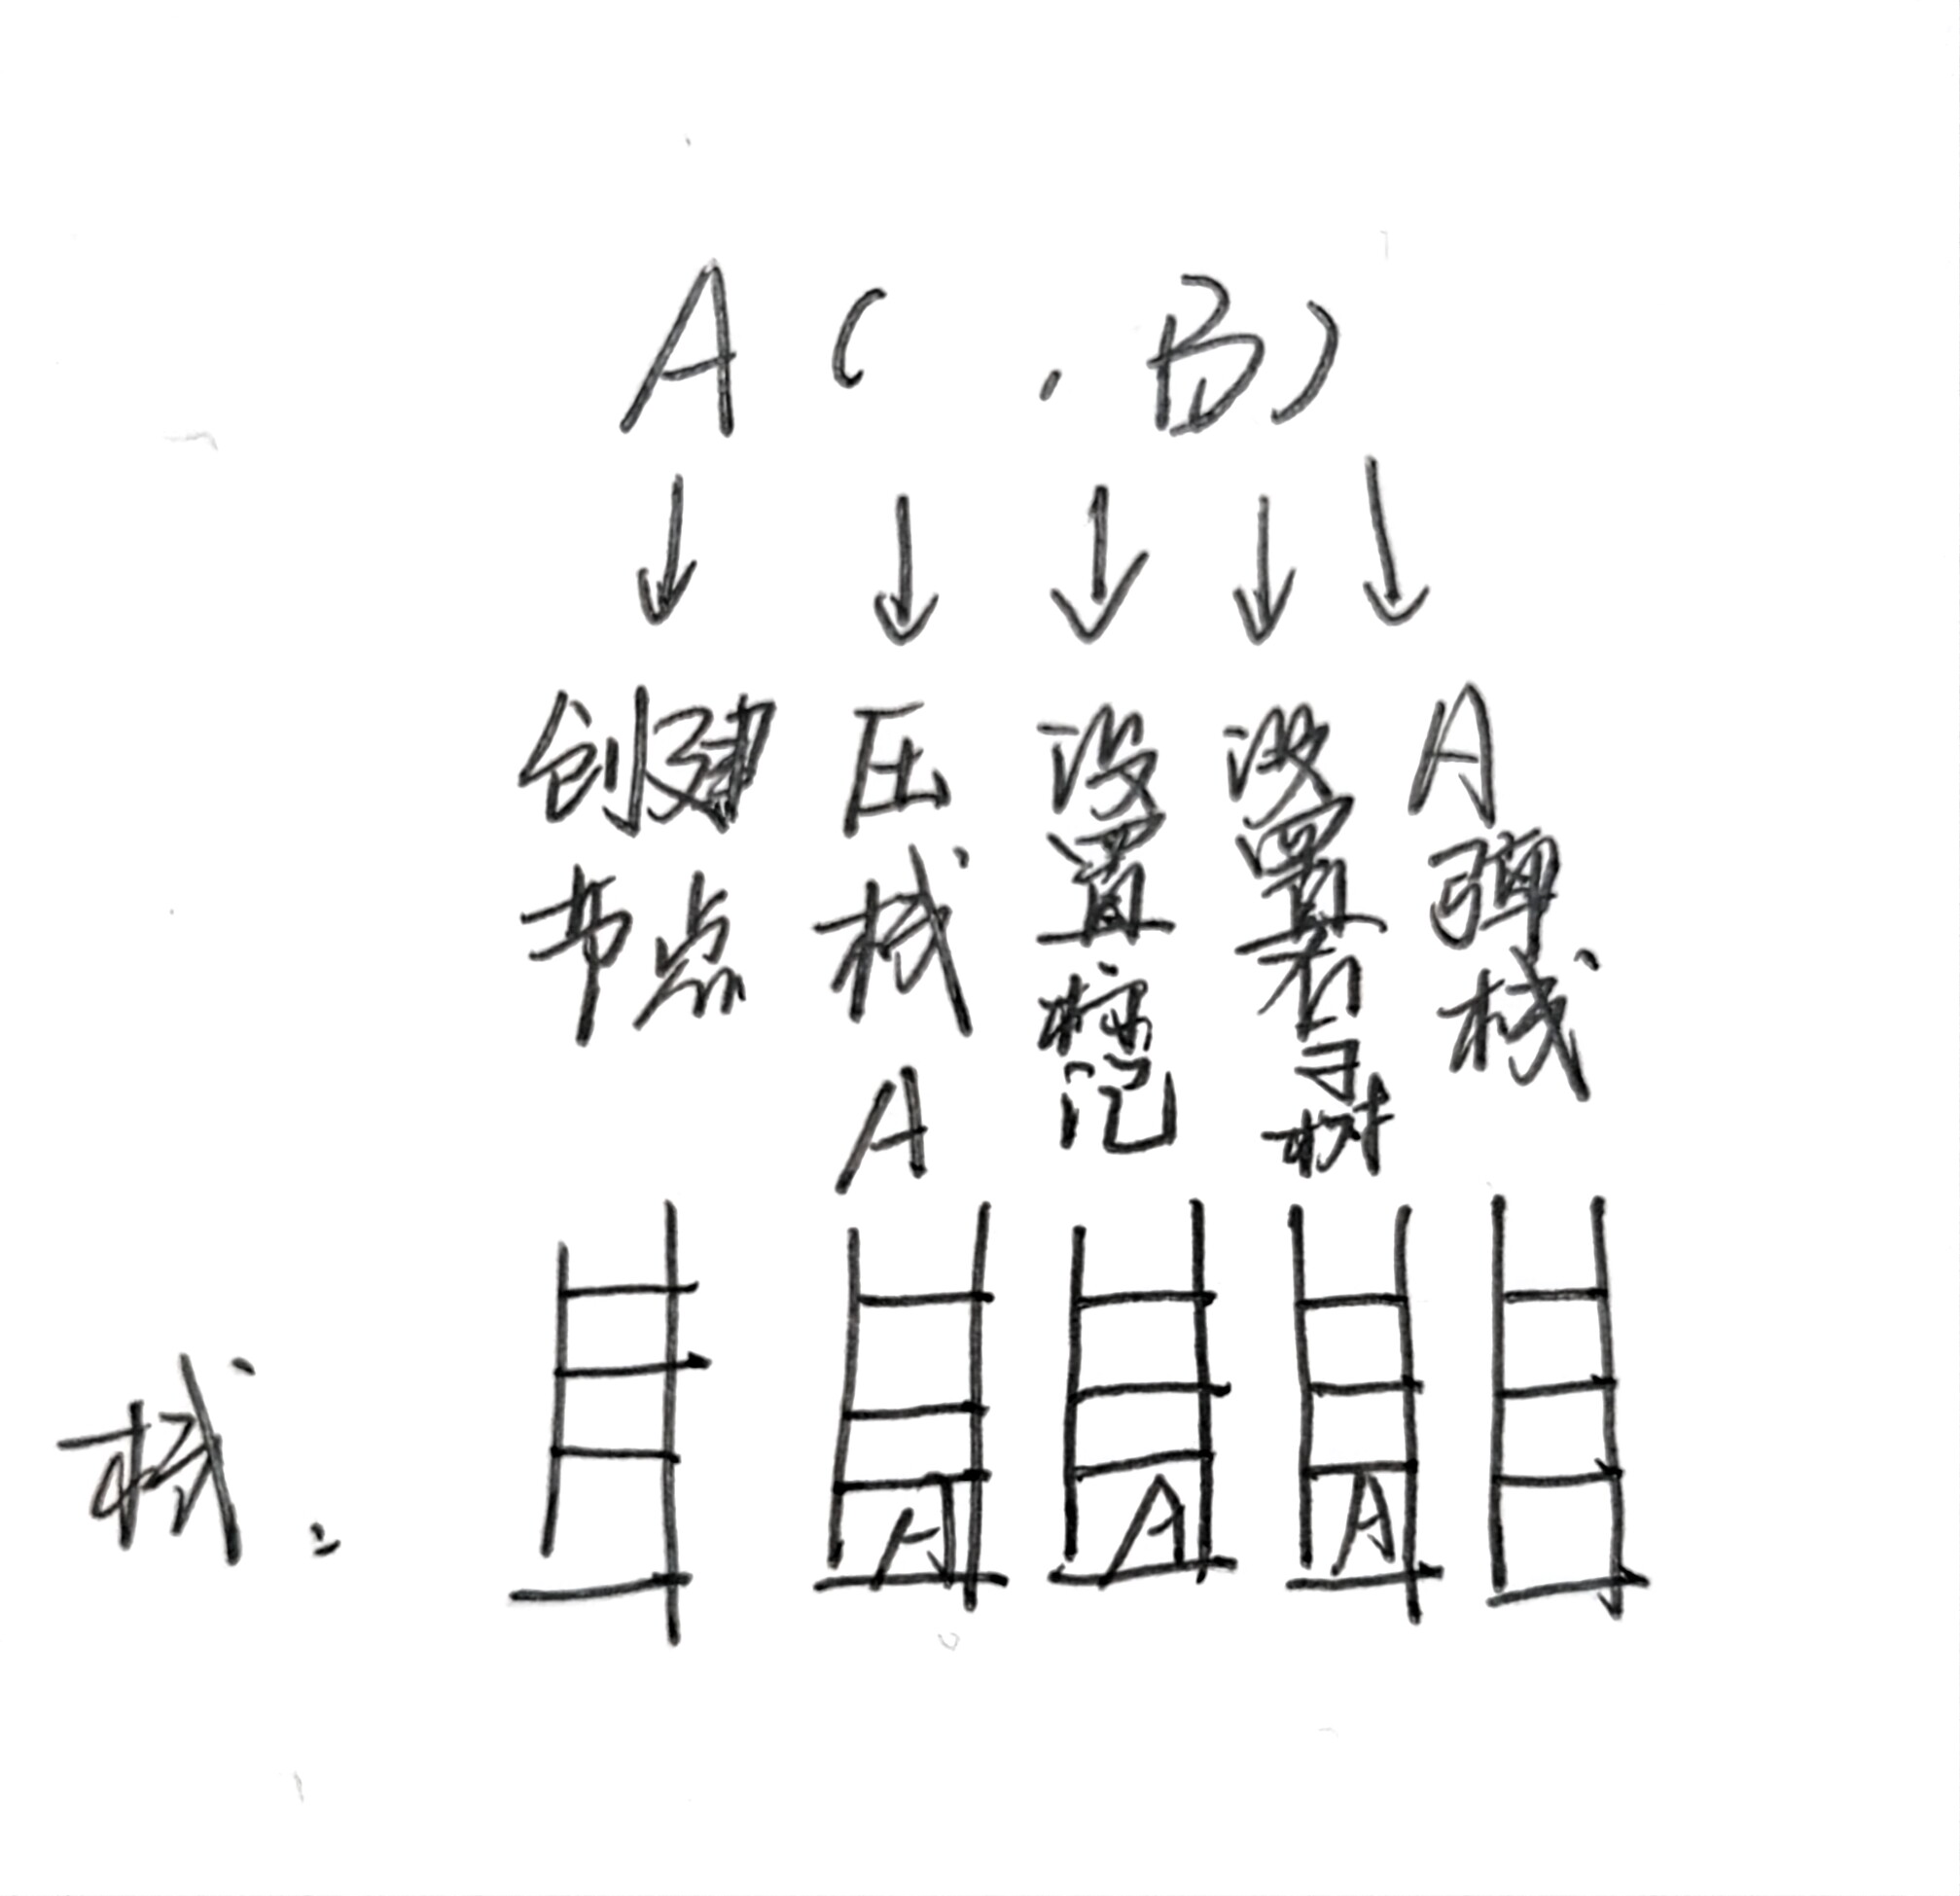 A ( , B )
创建节点
压栈A
设置标记
设置右子树
A弹栈
栈:
A A A